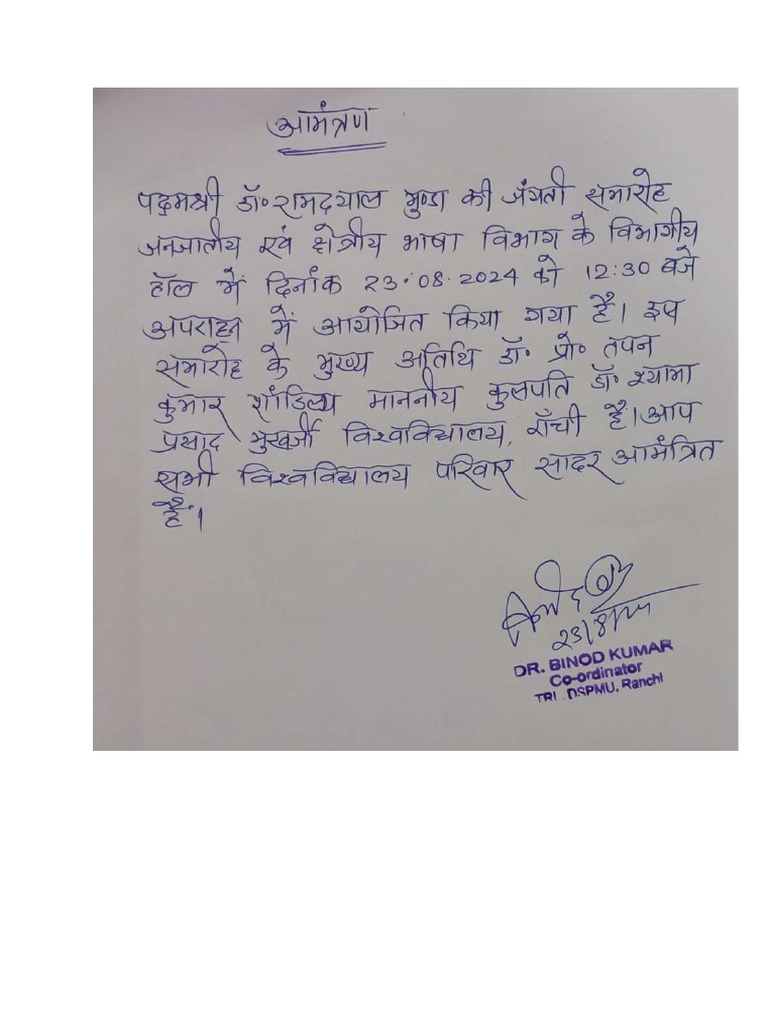 आमंत्रण
पद्मश्री डॉ० रामदयाल मुण्डा की जंयती समारोह
जनजातीय एवं क्षेत्रीय भाषा विभाग के विभागीय
हॉल में दिनांक 23.08.2024 को 12:30 बजे
अपराह्न में आयोजित किया गया है। इस
समारोह के मुख्य अतिथि डॉ० प्रो० तपन
कुमार शांडिल्य माननीय कुलपति डॉ० श्यामा
प्रसाद मुखर्जी विश्वविद्यालय, राँची हैं। आप
सभी विश्वविद्यालय परिवार सादर आमंत्रित
हैं।
23/8/24
DR. BINOD KUMAR
Co-ordinator
TRL, DSPMU, Ranchi